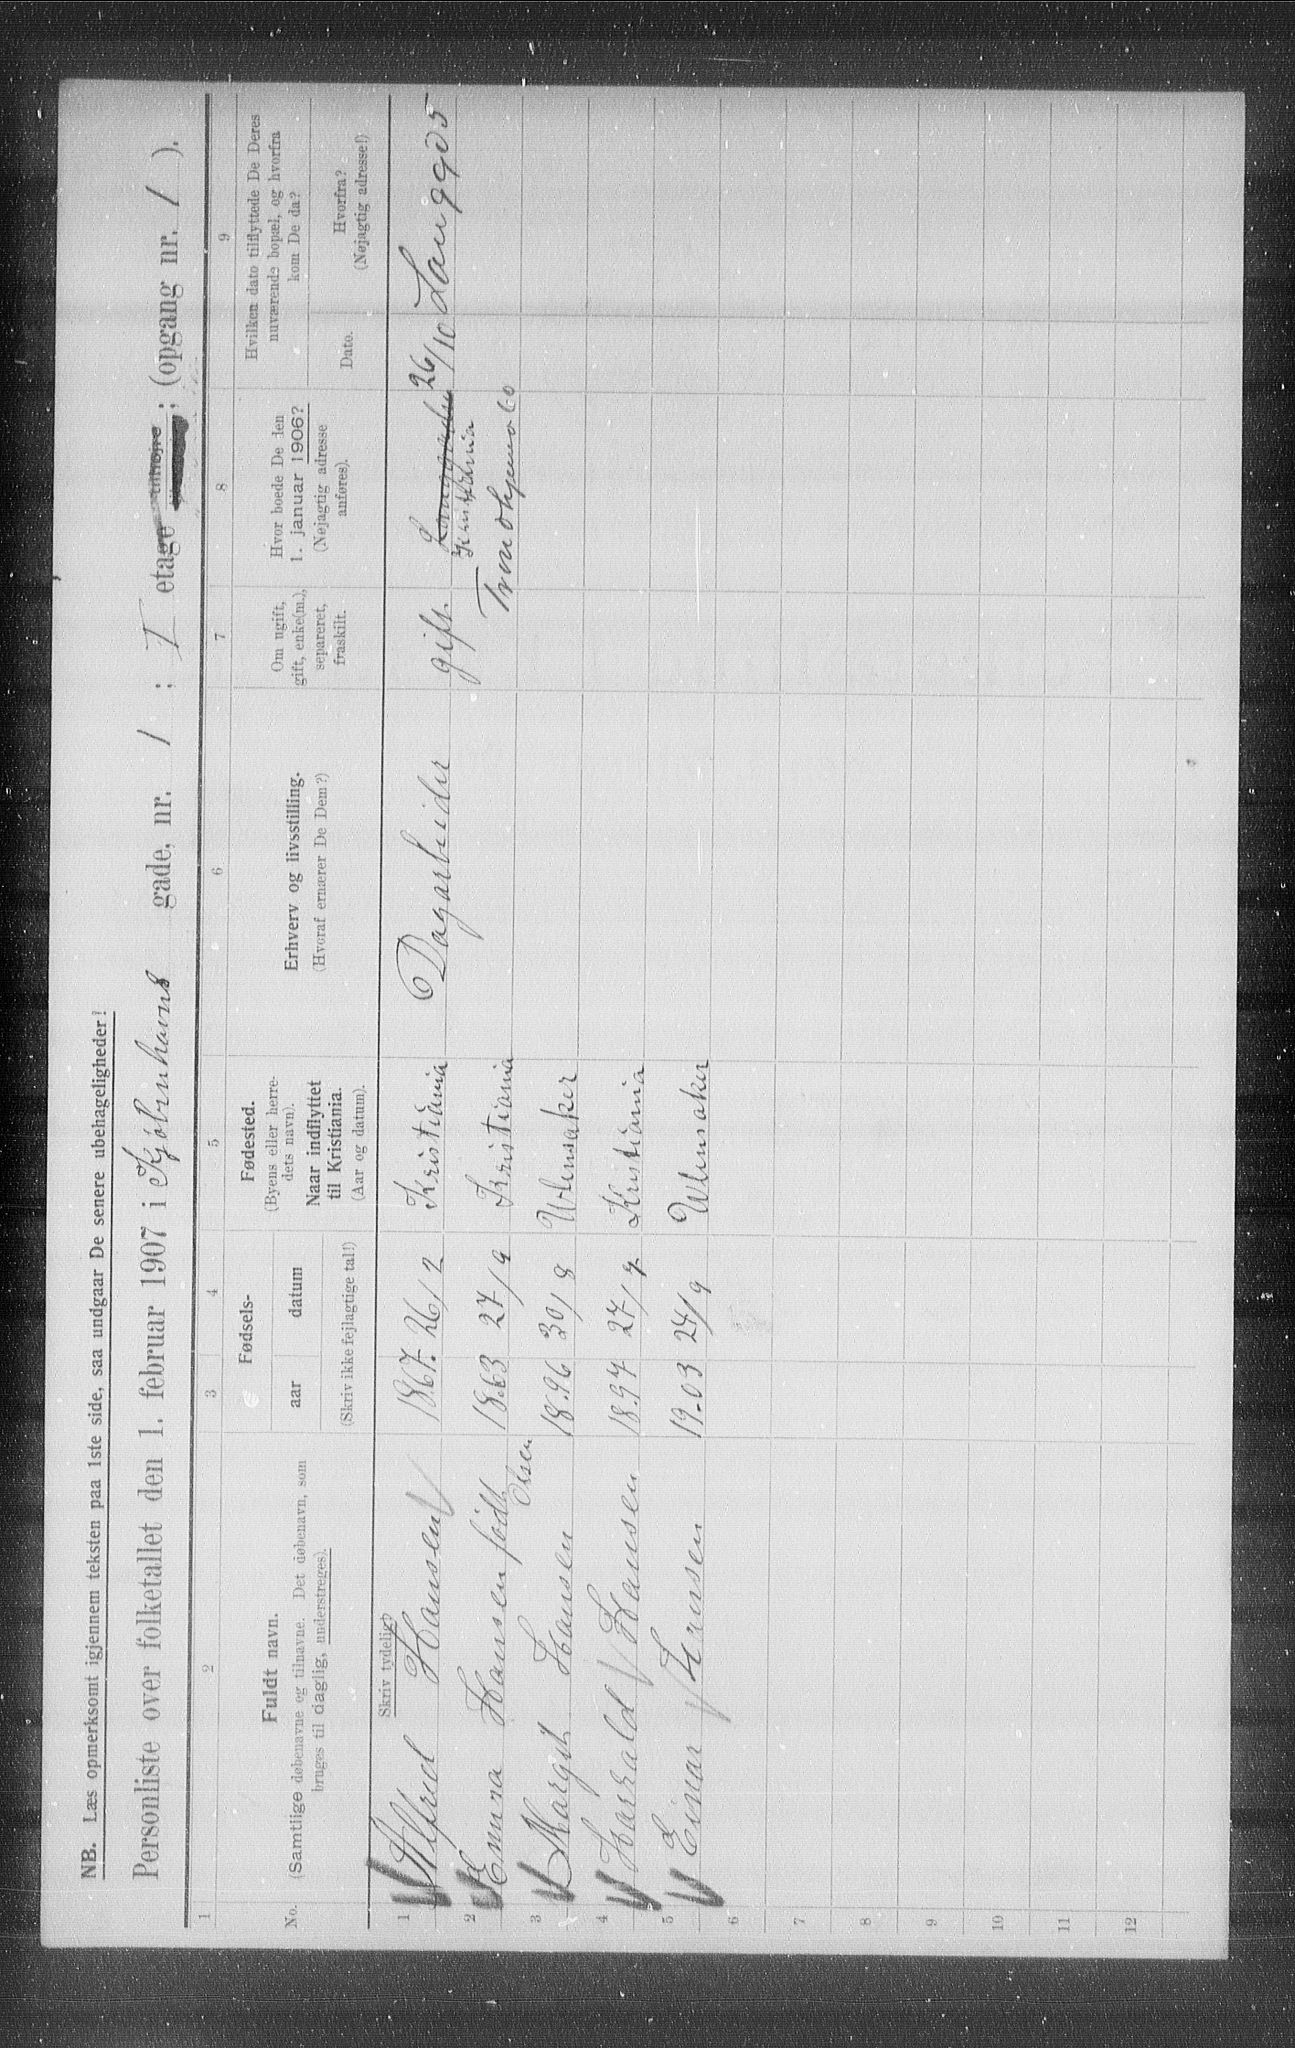 NB. Læs opmerksomt igjennem teksten paa 1ste side, saa undgaar De senere ubehageligheder!
Personliste over folketallet den 1. februar 1907 i Kjøbenhavns gade, nr. 1 ; I etage tilhøire ; (opgang nr. 1 ).
1 2 3 4 5 6 7 8 9
No.
Fuldt navn.
(Samtlige døbenavne og tilnavne. Det døbenavn, som
bruges til daglig, understreges).
Fødsels-
aar datum
(Skriv ikke fejlagtige tal!)
Fødested.
(Byens eller herre-
dets navn).
Naar indflyttet
til Kristiania.
(Aar og datum).
Erhverv og livsstilling.
(Hvoraf ernærer De Dem?)
Om ugift,
gift, enke(m.),
separeret,
fraskilt.
Hvor boede De den
1. januar 1906?
(Nøjagtig adresse
anføres).
Hvilken dato tilflyttede De Deres
nuværende bopæl, og hvorfra
kom De da?
Dato.
Hvorfra?
(Nøjagtig adresse!)
Skriv tydeligt
1 Alfred Hansen 1867. 26/2 Kristiania Dagarbeider gift 26/10 Langgd 5
Kristiania
2 Emma Hansen född 1863 27/9 Kristiania
Olsen
3 Margit Hansen 1896 30/8 Ullensaker
4 Harrald Hansen 1897 27/7 Kristiania
5 Einar Hansen 1903 24/9 Ullensaker
6
7
8
9
10
11
12